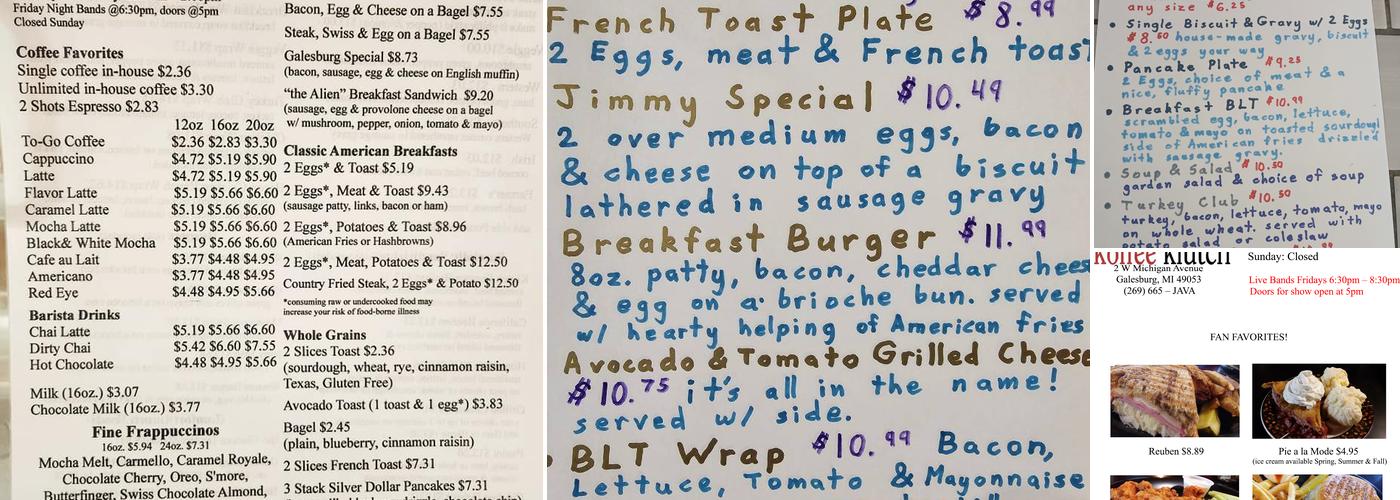 Friday Night Bands @6:30pm, doors @5pm
Closed Sunday
Coffee Favorites
Single coffee in-house $2.36
Unlimited in-house coffee $3.30
2 Shots Espresso $2.83
12oz 16oz 20oz
To-Go Coffee $2.36 $2.83 $3.30
Cappuccino $4.72 $5.19 $5.90
Latte $4.72 $5.19 $5.90
Flavor Latte $5.19 $5.66 $6.60
Caramel Latte $5.19 $5.66 $6.60
Mocha Latte $5.19 $5.66 $6.60
Black& White Mocha $5.19 $5.66 $6.60
Cafe au Lait $3.77 $4.48 $4.95
Americano $3.77 $4.48 $4.95
Red Eye $4.48 $4.95 $5.66
Barista Drinks
Chai Latte $5.19 $5.66 $6.60
Dirty Chai $5.42 $6.60 $7.55
Hot Chocolate $4.48 $4.95 $5.66
Milk (16oz.) $3.07
Chocolate Milk (16oz.) $3.77
Fine Frappuccinos
16oz. $5.94 24oz. $7.31
Mocha Melt, Carmello, Caramel Royale,
Chocolate Cherry, Oreo, S'more,
Butterfinger, Swiss Chocolate Almond,
Bacon, Egg & Cheese on a Bagel $7.55
Steak, Swiss & Egg on a Bagel $7.55
Galesburg Special $8.73
(bacon, sausage, egg & cheese on English muffin)
“the Alien” Breakfast Sandwich $9.20
(sausage, egg & provolone cheese on a bagel
w/ mushroom, pepper, onion, tomato & mayo)
Classic American Breakfasts
2 Eggs* & Toast $5.19
2 Eggs*, Meat & Toast $9.43
(sausage patty, links, bacon or ham)
2 Eggs*, Potatoes & Toast $8.96
(American Fries or Hashbrowns)
2 Eggs*, Meat, Potatoes & Toast $12.50
Country Fried Steak, 2 Eggs* & Potato $12.50
*consuming raw or undercooked food may
increase your risk of food-borne illness
Whole Grains
2 Slices Toast $2.36
(sourdough, wheat, rye, cinnamon raisin,
Texas, Gluten Free)
Avocado Toast (1 toast & 1 egg*) $3.83
Bagel $2.45
(plain, blueberry, cinnamon raisin)
2 Slices French Toast $7.31
3 Stack Silver Dollar Pancakes $7.31
French Toast Plate $8.99
2 Eggs, meat & French toast
Jimmy Special $10.49
2 over medium eggs, bacon
& cheese on top of a biscuit
lathered in sausage gravy
Breakfast Burger $11.99
8oz. patty, bacon, cheddar chees
& egg on a brioche bun. served
w/ hearty helping of American fries
Avocado & Tomato Grilled Cheese
$10.75 it's all in the name!
served w/ side.
BLT Wrap $10.99 Bacon,
Lettuce, Tomato & Mayonnaise
any size $6.25
• Single Biscuit & Gravy w/ 2 Eggs
$8.50 house-made gravy, biscuit
& 2 eggs your way
• Pancake Plate $9.25
2 Eggs, choice of meat & a
nice, fluffy pancake
• Breakfast BLT $10.99
scrambled egg, bacon, lettuce,
tomato & mayo on toasted sourdough
side of American fries drizzled
with sausage gravy.
• Soup & Salad $10.50
garden salad & choice of soup
• Turkey Club $10.50
turkey, bacon, lettuce, tomato, mayo
on whole wheat. served with
potato salad or coleslaw
Koffee Klutch
2 W Michigan Avenue
Galesburg, MI 49053
(269) 665 – JAVA
Sunday: Closed
Live Bands Fridays 6:30pm – 8:30pm
Doors for show open at 5pm
FAN FAVORITES!
Reuben $8.89
Pie a la Mode $4.95
(ice cream available Spring, Summer & Fall)